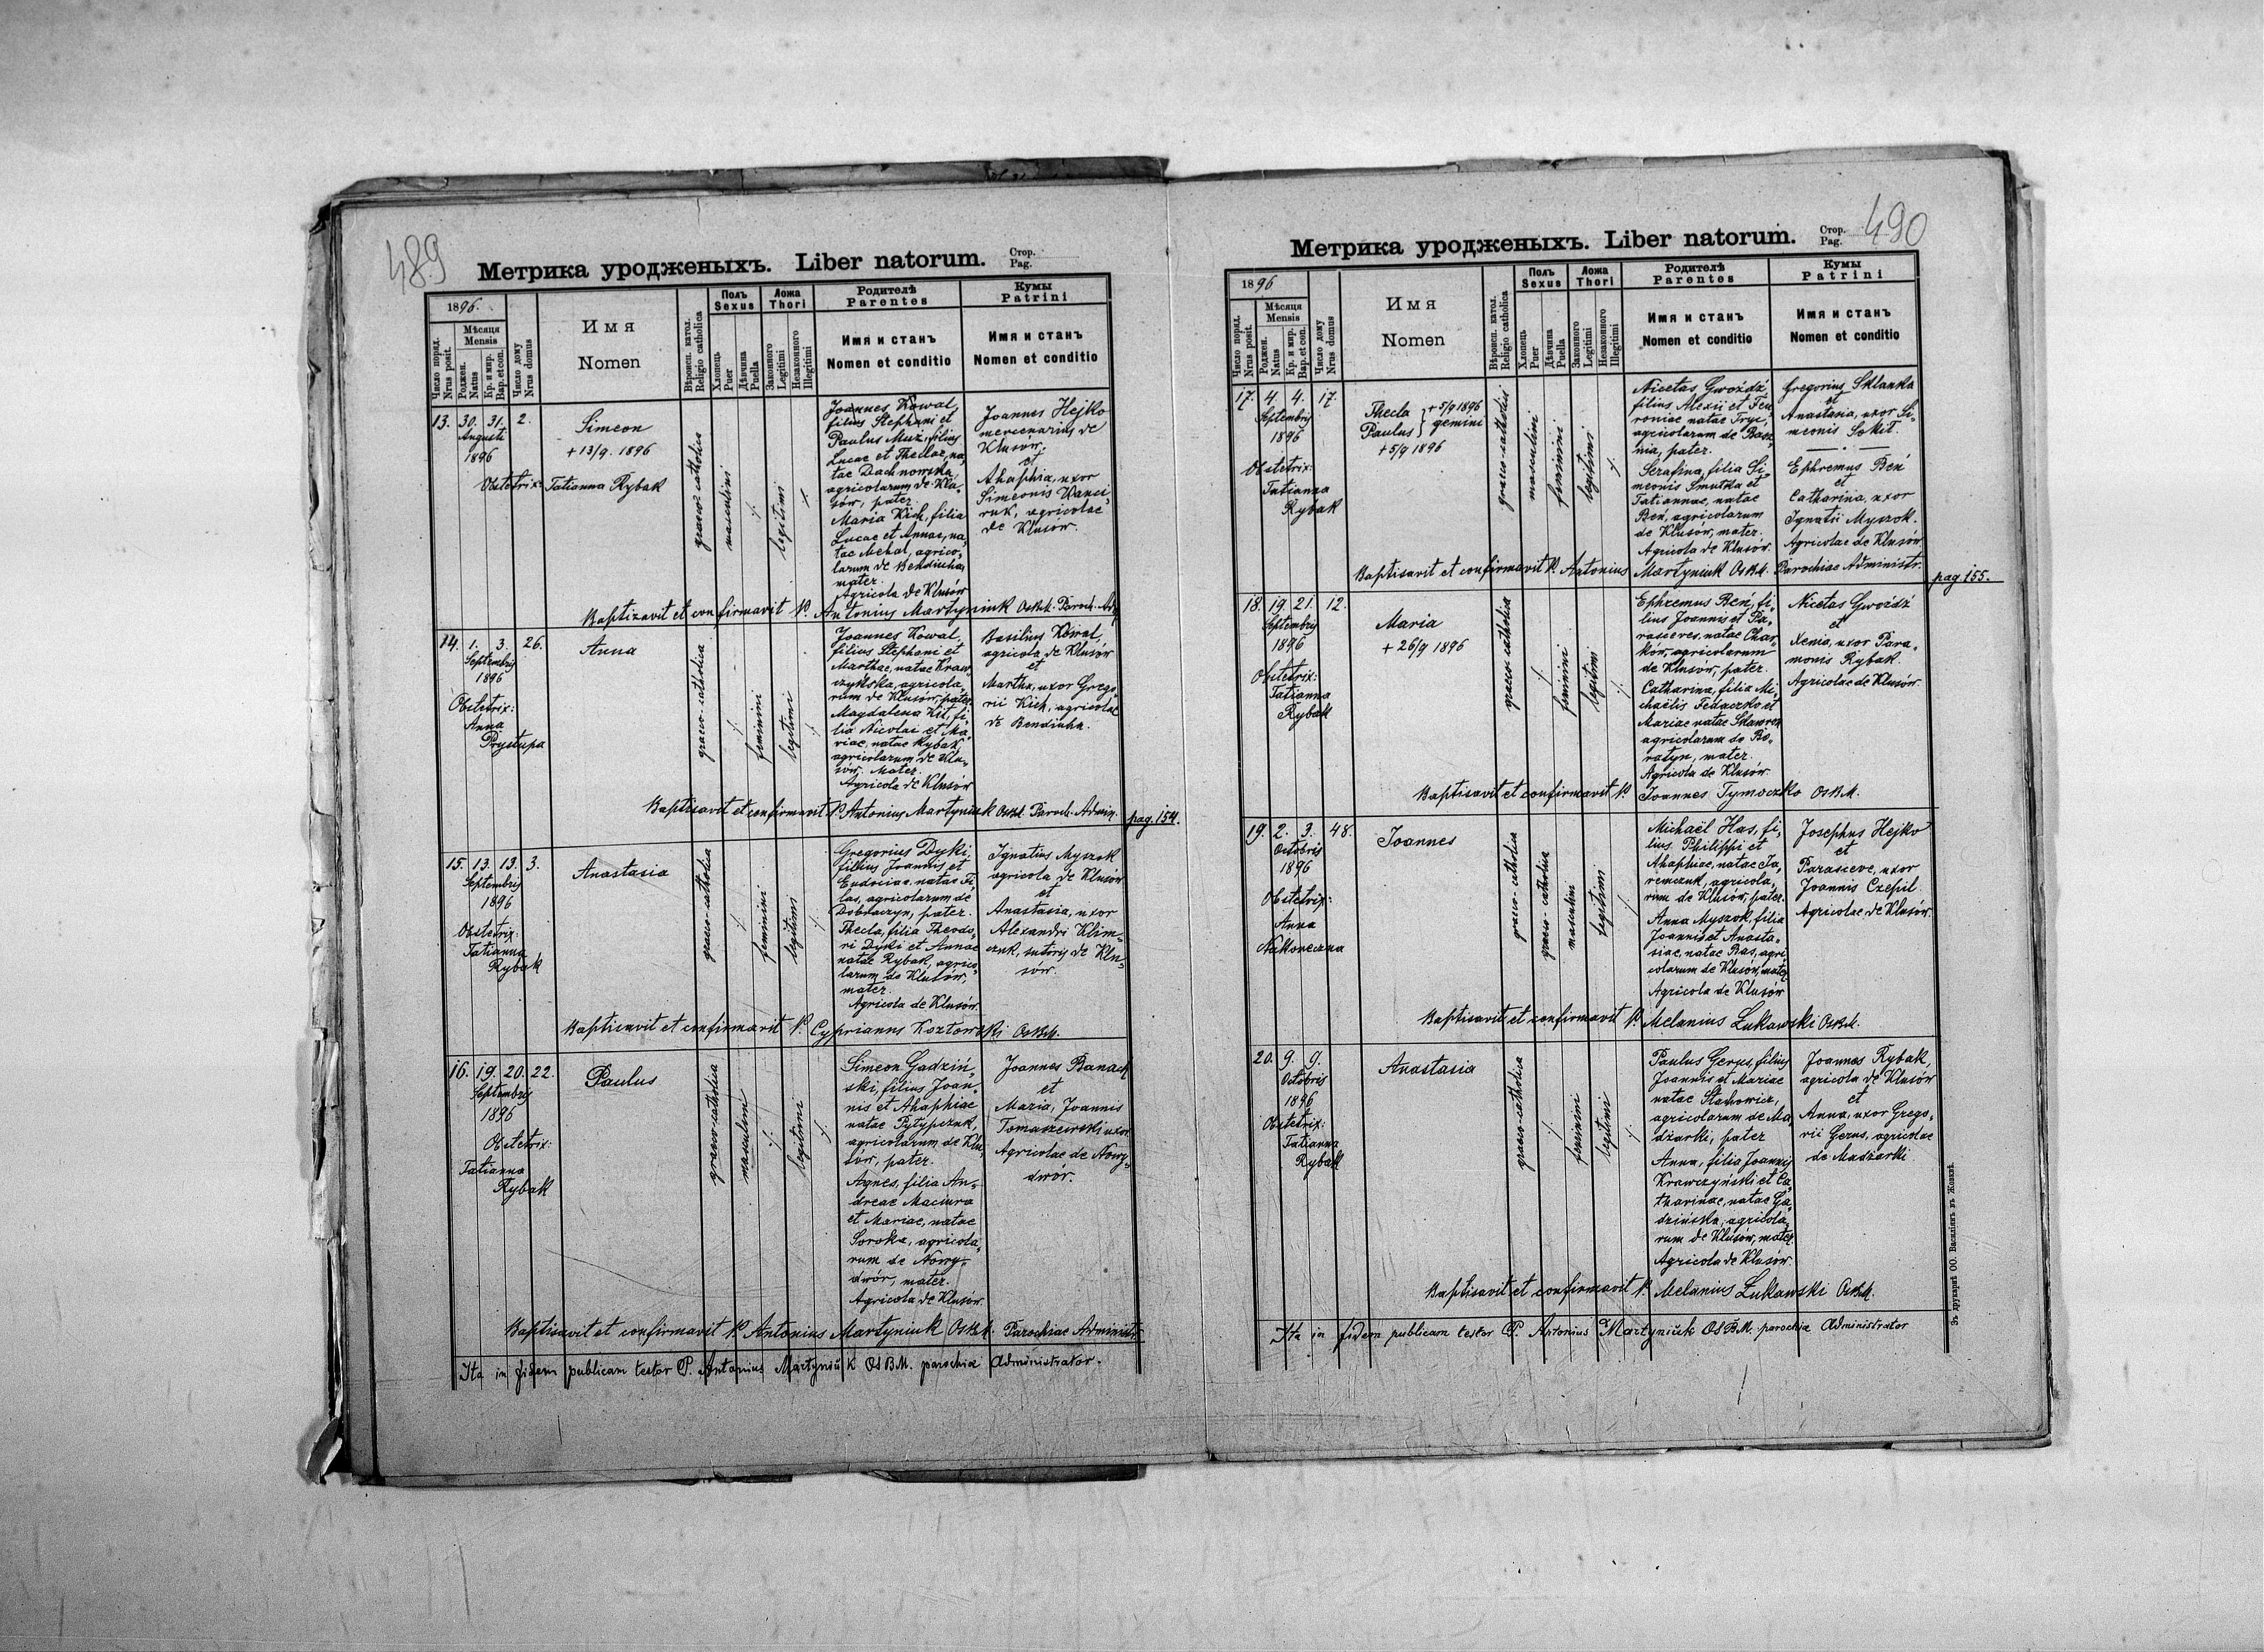 489
Метрика уродженыхъ. Liber natorum.
Стор.
Pag.
1896.
Число поряд.
Nrus posit.
Мѣсяця
Mensis
Роджен.
Natus
Кр. и мир.
Bap. et con.
Число дому
Nrus domus
Имя
Nomen
Вѣроисп. катол.
Religio catholica
Полъ
Sexus
Хлопець
Puer
Дѣвчина
Puella
Ложа
Thori
Законного
Legitimi
Незаконного
Illegitimi
Родителѣ
Parentes
Имя и станъ
Nomen et conditio
Кумы
Patrini
Имя и станъ
Nomen et conditio
13. 30. 31. 2.
Augusti
1896
Simeon
+ 13/9. 1896
Obstetrix: Tatianna Rybak
graeco-catholica
masculini
legitimi
Joannes Kowal,
filius Stephani et
Paulus Muz, filius
Lucae et Theclae, na„
tae Dachnowska
agricolarum de Klu„
sów, pater.
Maria Kich, filia
Lucae et Annae, na„
tae Mehal, agrico„
larum de Bendiucha
mater.
Agricola de Klusów
Joannes Hejko
mercenarius de
Klusów,
et
Ahaphia, uxor
Simeonis Wanci„
ruk, agricolae
de Klusów.
Baptizavit et confirmavit P. Antonius Martyniuk OSBM. Paroch. Adm
14. 1. 3. 26.
Septembris
1896
Obstetrix:
Anna
Prystupa
Anna
graeco-catholica
feminini
legitimi
Joannes Kowal,
filius Stephani et
Marthae, natae Kraw„
czyńska, agricola„
rum de Klusów, pater
Magdalena Kit, fi„
lia Nicolai et Ma„
riae, natae Rybak,
agricolarum de Klu„
sów, Mater.
Agricola de Klusów
Basilius Kowal,
agricola de Klusów
et
Martha, uxor Grego„
rii Kich, agricolae
de Bendiuha.
Baptisavit et confirmavit P. Antonius Martyniuk OSBM. Paroch. Admin.
pag. 154.
15. 13. 13. 3.
Septembris
1896
Obstetrix:
Tatianna
Rybak
Anastasia
graeco-catholica
feminini
legitimi
Gregorius Dyki,
filius Joannis et
Eudociae natae Fi„
las, agricolarum de
Dobraczyn, pater.
Thecla, filia Theodo„
ri Dyki et Annae
natae Rybak, agrico„
larum de Klusów,
mater.
Agricola de Klusów
Ignatius Myszok
agricola de Klusów
et
Anastasia, uxor
Alexandri Klim„
czuk, sutoris de Klu„
sów.
Baptisavit et confirmavit P. Cyprianus Kozłowski OSBM.
16. 19. 20. 22.
Septembris
1896
Obstetrix:
Tatianna
Rybak
Paulus
graeco-catholica
masculini
legitimi
Simeon Gadziń„
ski, filius Joan„
nis et Ahaphiae
natae Pytypczuk,
agricolarum de Klu„
sów, pater.
Agnes, filia An„
dreae Maciura
et Mariae, natae
Soroka, agricola„
rum de Nowy„
dwór, mater.
Agricola de Klusów
Joannes Banach
et
Maria, Joannis
Tomaszewski uxor
Agricolae de Nowy„
dwór.
Baptisavit et confirmavit P. Antonius Martyniuk OSBM. Parochiae Administr.
Ita in fidem publicam testor P. Antonius Martyniŭk OSBM. parochiæ Administrator.
490
Метрика уродженыхъ. Liber natorum.
Стор.
Pag.
1896
Число поряд.
Nrus posit.
Мѣсяця
Mensis
Роджен.
Natus
Кр. и мир.
Bap. et con.
Число дому
Nrus domus
Имя
Nomen
Вѣроисп. катол.
Religio catholica
Полъ
Sexus
Хлопець
Puer
Дѣвчина
Puella
Ложа
Thori
Законного
Legitimi
Незаконного
Illegitimi
Родителѣ
Parentes
Имя и станъ
Nomen et conditio
Кумы
Patrini
Имя и станъ
Nomen et conditio
17. 4. 4. 17.
Septembris
1896
Obstetrix:
Tatianna
Rybak
Thecla } + 5/9 1896
Paulus } gemini
+ 5/9 1896
graeco-catholici
masculini
feminini
legitimi
Nicetas Gwoźdź
filius Alexii et Feu„
roniae natae Tryc,
agricolarum de
pater.
Serafina, filia Si„
meonis Smutka et
Tatiannae, natae
Beń, agricolarum
de Klusów, mater.
Agricola de Klusów.
Gregorius Sklanka
et
Anastasia, uxor Si„
meonis Sokit.
Ephremus Beń
et
Catharina, uxor
Ignatii Myszok.
Agricolae de Klusów
Baptisavit et confirmavit P. Antonius Martyniuk OSBM. Parochiae Administr.
pag. 155.
18. 19. 21. 12.
Septembris
1896
Obstetrix:
Tatianna
Rybak
Maria
+ 26/9 1896
graeco-catholica
feminini
legitimi
Ephremus Beń, fi„
lius Joannis et Pa„
rasceves, natae Chas„
kow, agricolarum
de Klusów, pater.
Catharina, filia Mi„
chaëlis Fedaczko et
Mariae natae
agricolarum de Bo„
ratyn, mater.
Agricola de Klusów.
Nicetas Gwoźdź
et
Xenia, uxor Para„
monis Rybak.
Agricolae de Klusów.
Baptisavit et confirmavit P. Joannes Tymoczko OSBM.
19. 2. 3. 48.
Octobris
1896
Obstetrix:
Anna
Nakoneczna
Joannes
graeco-catholica
graeco-catholica
masculini
legitimi
Michaël Has, fi„
lius Philippi et
Ahaphiae, natae Ja„
remczuk, agricola„
rum de Klusów, pater.
Anna Myszok, filia
Joannis et Anasta„
siae, natae Bas, agri„
colarum de Klusów, mater
Agricola de Klusów
Josephus Hejko
et
Parasceve, uxor
Joannis Czepil.
Agricolae de Klusów.
Baptisavit et confirmavit P. Melanius Łukawski OSBM.
20. 9. 9.
Octobris
1896
Obstetrix:
Tatianna
Rybak
Anastasia
graeco-catholica
feminini
legitimi
Paulus Gerus, filius
Joannis et Mariae
natae Stachowicz,
agricolarum de Ma„
dżarki, pater
Anna, filia Joannis
Krawczyński et Ca„
tharinae, natae Ga„
dzińska, agricola„
rum de Klusów, mater.
Agricola de Klusów.
Joannes Rybak,
agricola de Klusów
et
Anna, uxor Grego„
rii Gerus, agricolae
de Madżarki.
Baptisavit et confirmavit P. Melanius Łukawski OSBM.
Ita in fidem publicam testor P. Antonius Martyniŭk OSBM. parochiæ Administrator
Зъ друкарнѣ ОО. Василіянъ въ Жовквѣ.